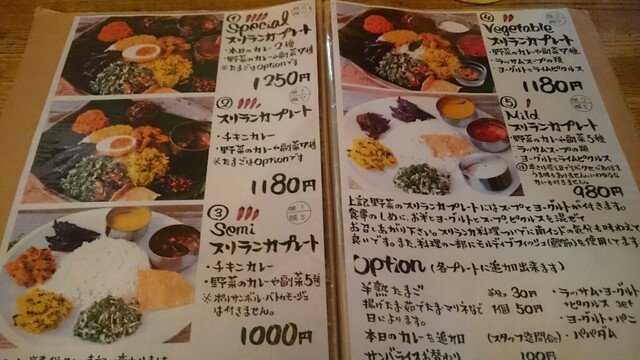 ① Special
スリランカプレート
・本日のカレー2種
・野菜のカレーや副菜7種
※たまごはoptionです
1250円
② スリランカプレート
・チキンカレー
・野菜のカレーや副菜7種
※たまごはoptionです
1180円
③ Semi
スリランカプレート
・チキンカレー
・野菜のカレーや副菜5種
※ポルサンボル・バトゥモージュは付きません。
1000円
④ Vegetable
スリランカプレート
・野菜のカレーや副菜7種
・ラッサムスープの類
・ヨーグルトとライムピクルス
1180円
⑤ Mild
スリランカプレート
・野菜のカレーや副菜5種
・ラッサムスープの類
・ヨーグルトとライムピクルス
980円
上記野菜のスリランカプレートにはスープとヨーグルトが付きます。
食事のしめに、お米とヨーグルトとスープ、ピクルスを混ぜて
お召しあがり下さい。スリランカ料理ついでに南インドの気分も味わえて
良いです。また、料理の一部にモルディブフィッシュ(鰹節)を使用してます
option (各プレートに追加出来ます)
半熟たまご 30円
揚げたまご茹でたまごマリネなど 1個 50円
日によります。
本日のカレーを追加 (スタッフ迄問合せ)
100円
・ライムorミックス
ピクルス set
・ヨーグルト+パニ
・パパダム